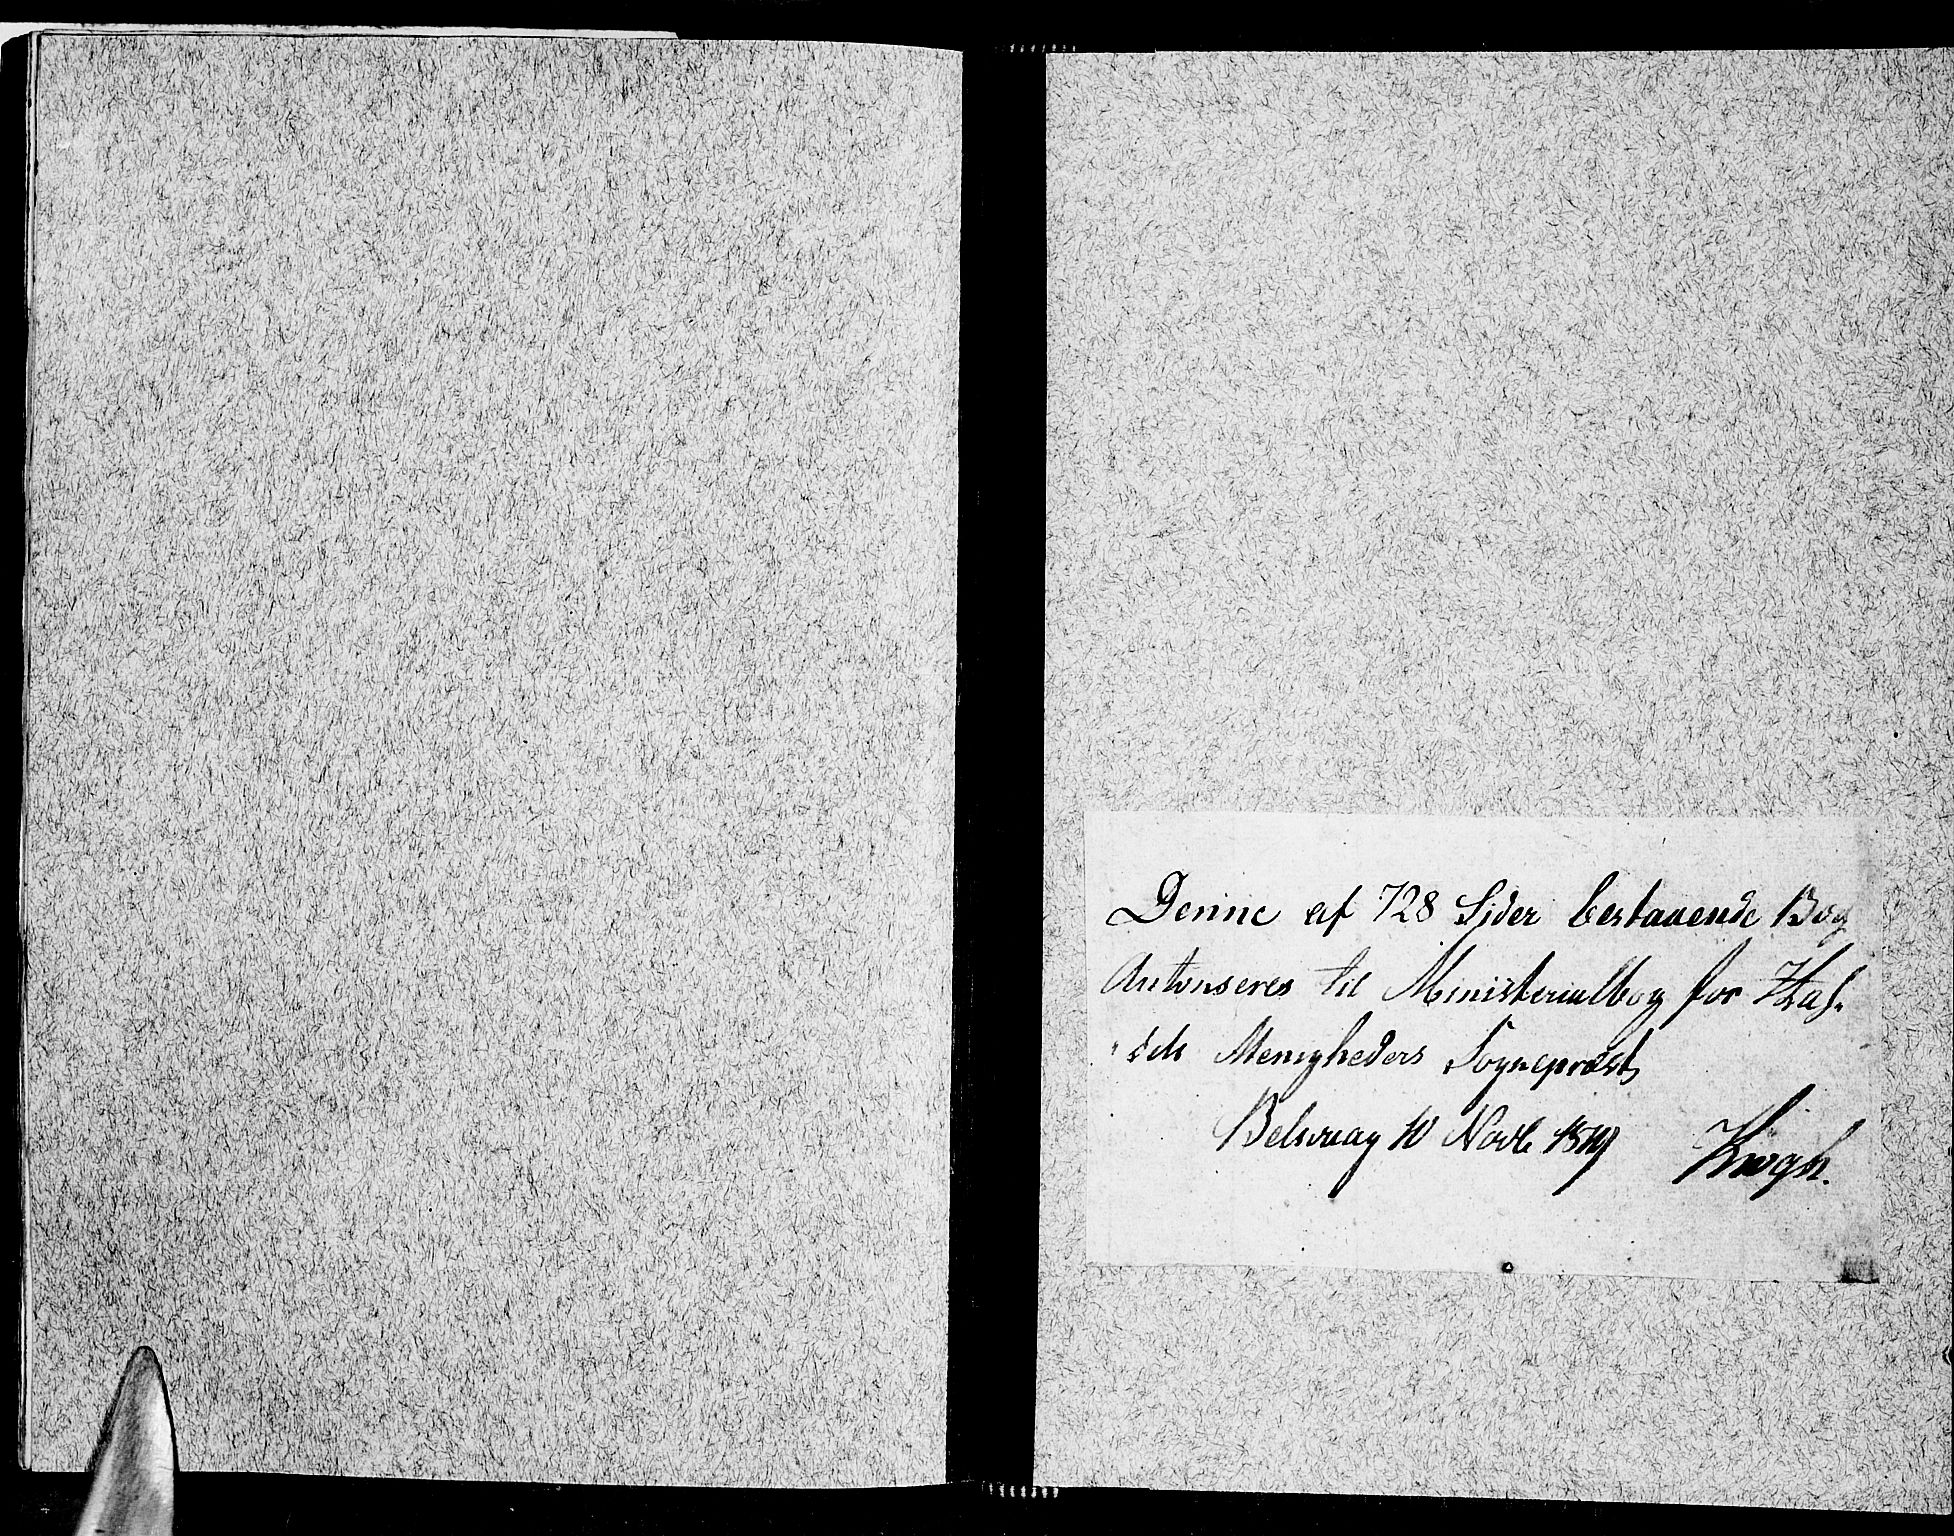 Denne af 728 Sider bestaaende Bog
Autoriseres til Ministerialbog for Has-
sels Menigheders Sognepræst
10 Novb 1819 Krogh.